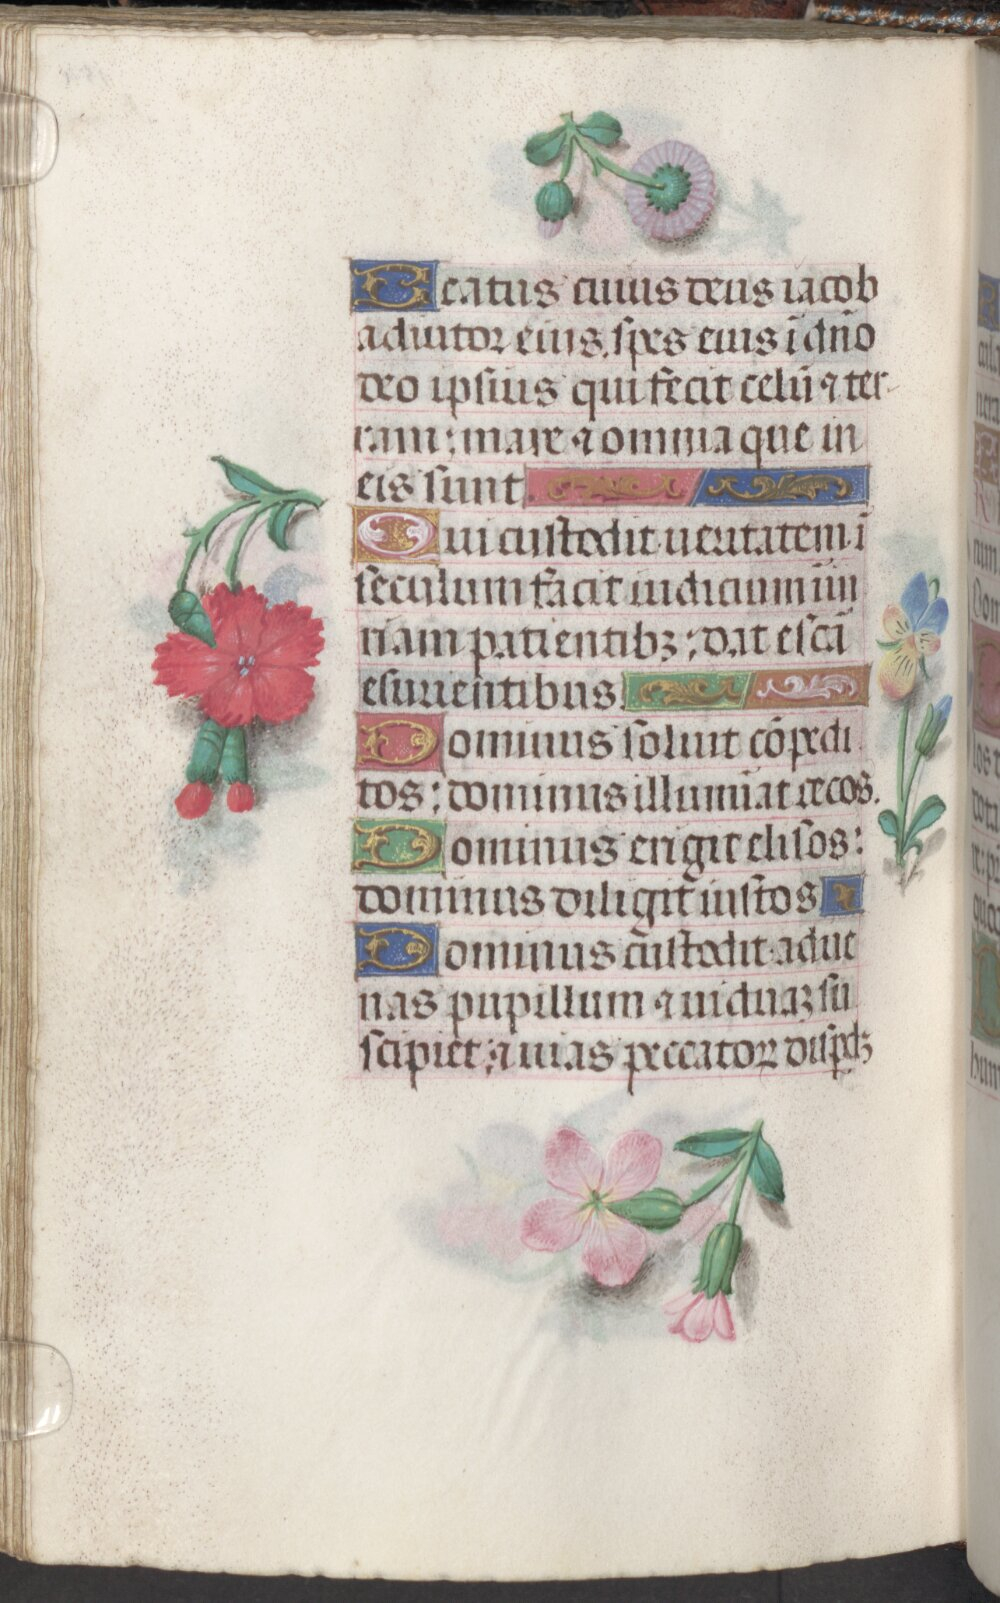 Beatus cuius deus iacob
adiutor eius, spes eius ī dn̄o
deo ipsius qui fecit celū ⁊ ter
ram: mare ⁊ omnia que in
eis sunt.
Qui custodit ueritatem ī
seculum facit iudicium iniu
riam patientibꝫ: dat escā
esurientibus
Dominus soluit cōpedi
tos: dominus illuminat cecos.
Dominus erigit elisos:
dominus diligit iustos
Dominus custodit adue
nas pupillum ⁊ uiduaꝫ su
scipiet: ⁊ uias peccatoꝝ disp̄dꝫ